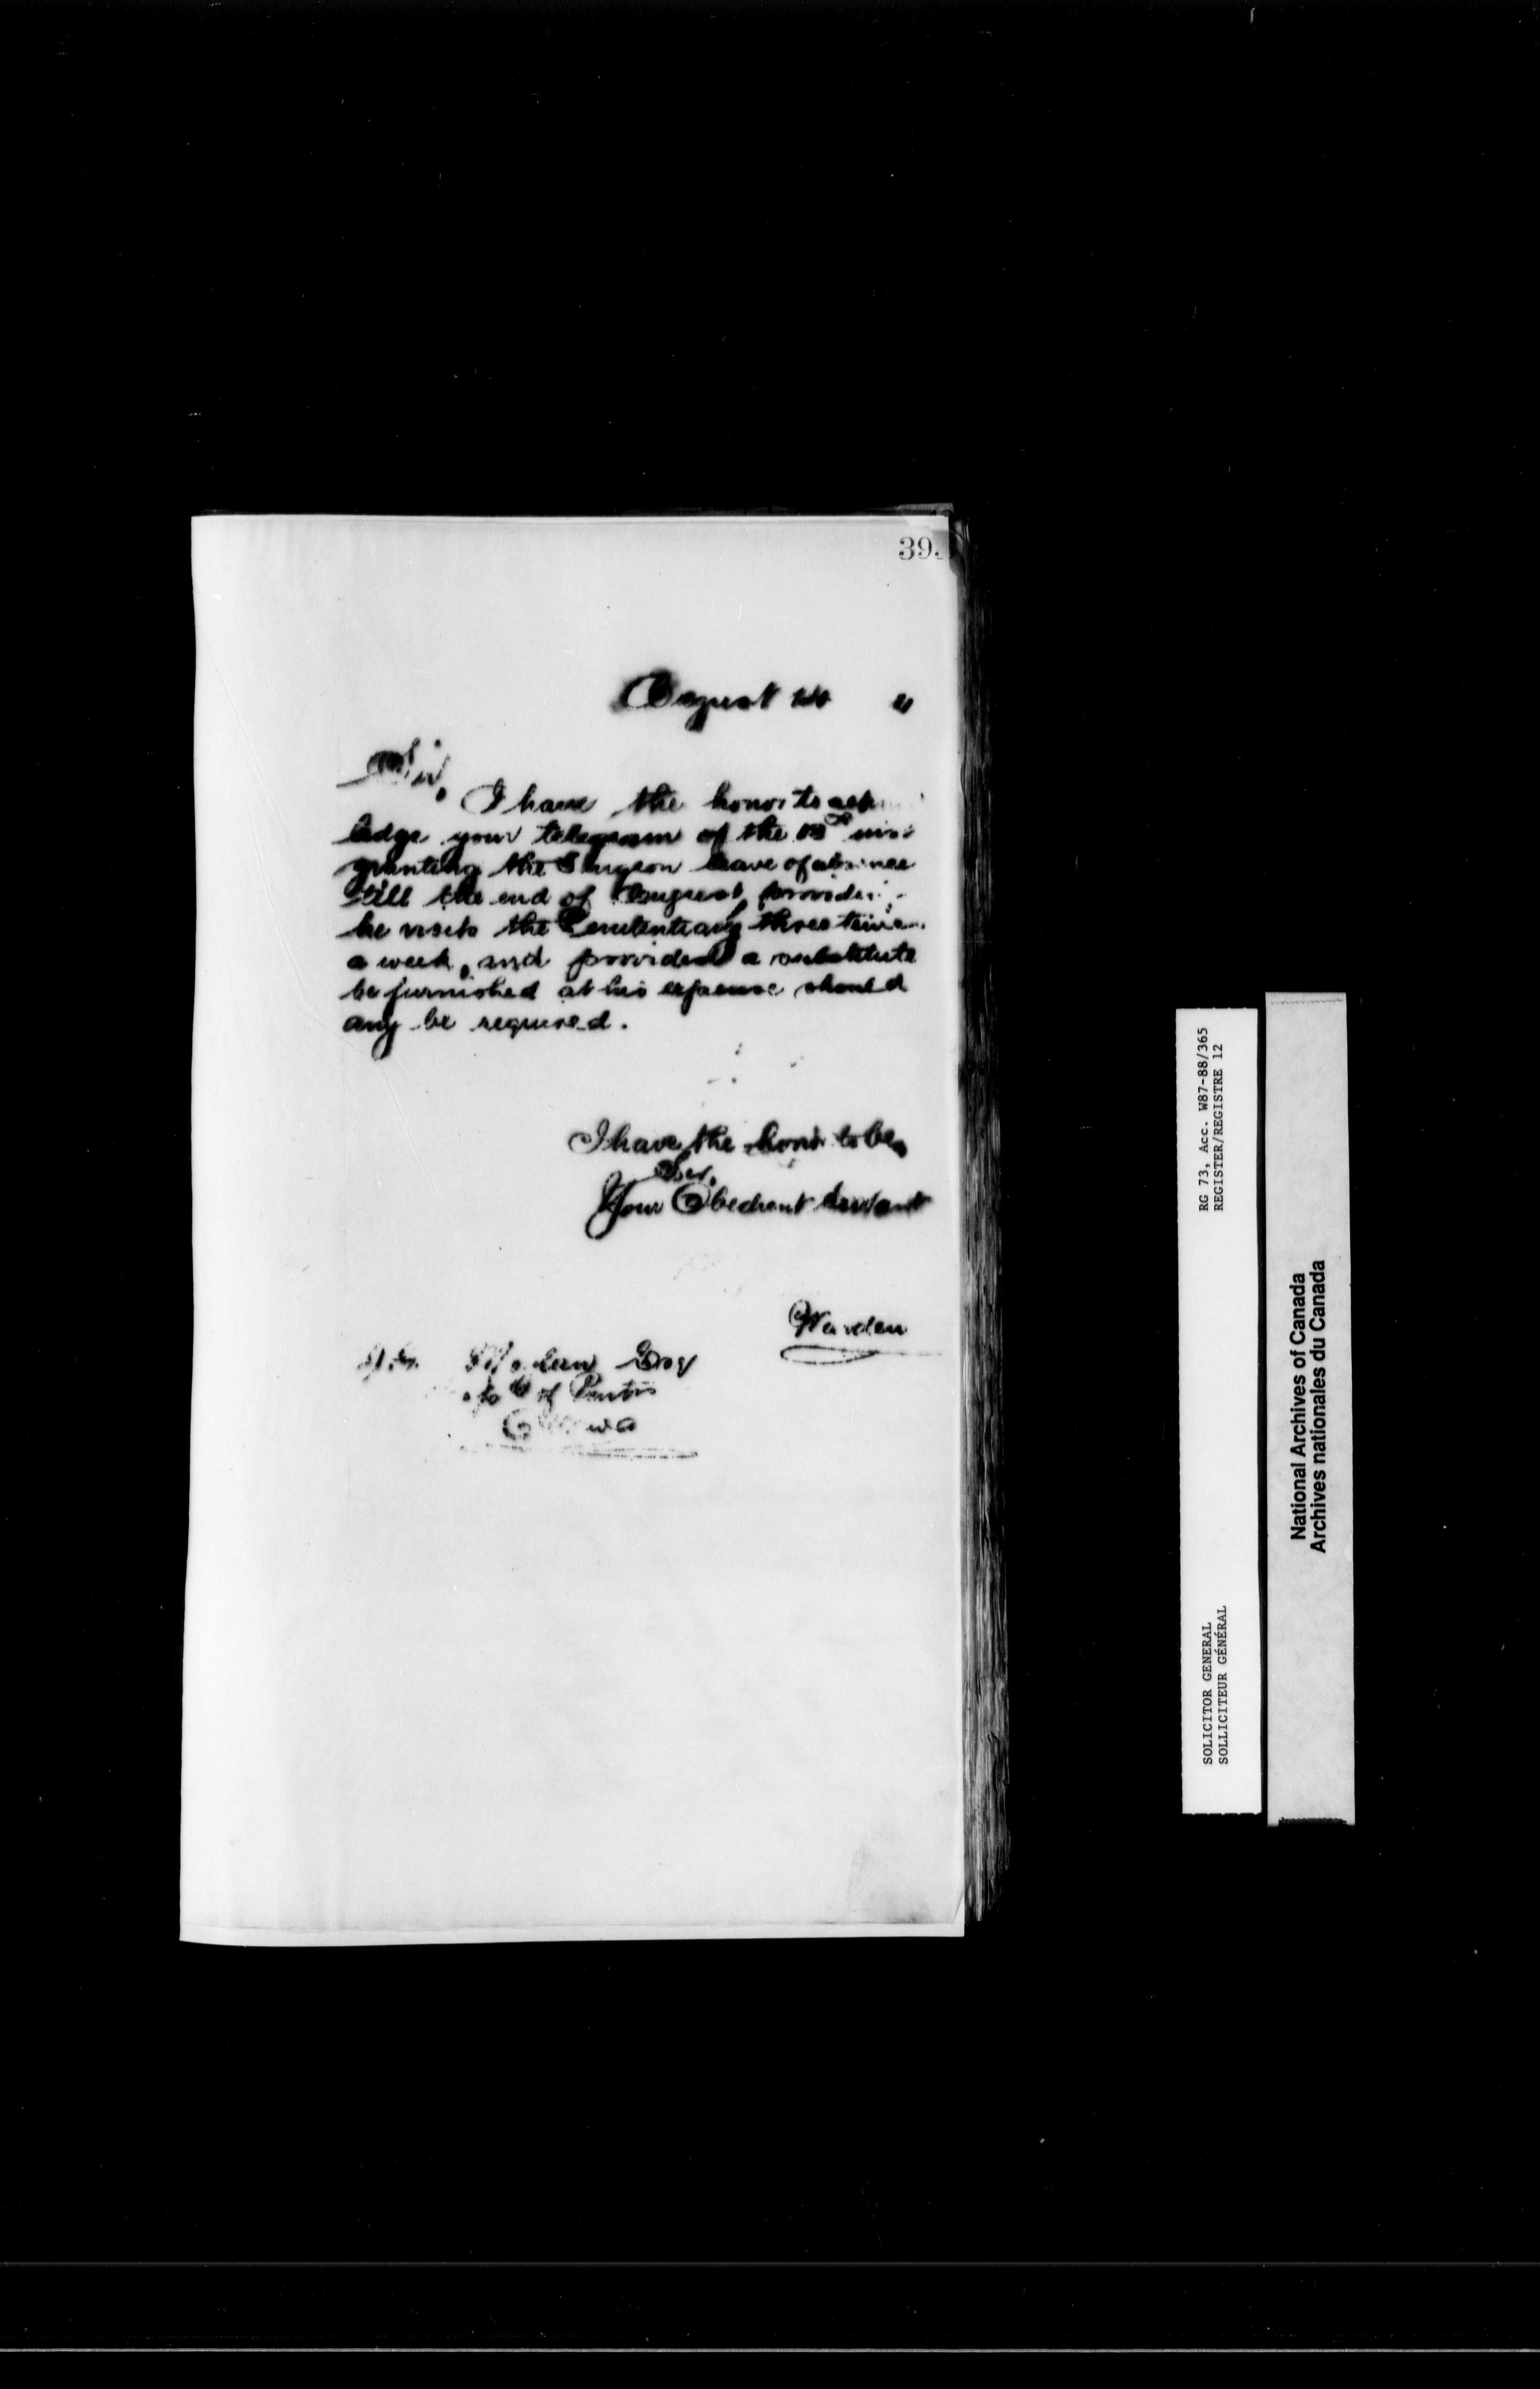 39.
August 14
Sir,
I have the honor to
ledge your telegram of the 13th inst
granting the Surgeon leave of absence
till the end of August,
he visits the Penitentiary three times
a week, and provided a substitute
be furnished at his expense should
any be required.
I have the honor to be,
Sir,
Your Obedient Servant
Warden
Esq
of
Ottawa
RG 73, Acc. W87-88/365
REGISTER/REGISTRE 12
SOLICITOR GENERAL
SOLLICITEUR GÉNÉRAL
National Archives of Canada
Archives nationales du Canada